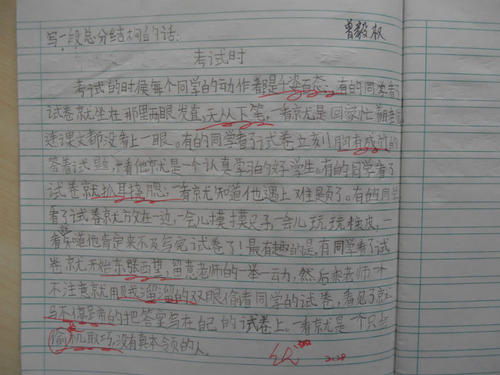 写一段总分结构的话:
曾毅权
考试时
考试的时候每个同学的动作都是千姿百态,有的同学拿
试卷就坐在那里两眼发直,无从下笔,一看就是回家忙着
连课文都没看上一眼。有的同学看了试卷立刻胸有成竹的
答着试题,一看他就是一个认真学习的好学生。有的同学看了
试卷就抓耳挠腮,一看就知道他遇上难题了。有的同
看了试卷就放在一边,一会儿摸摸尺子一会儿玩玩橡皮,一
看就知道他肯定来不及写完试卷了!最有趣的是,有同学看了试
卷就开始东张西望,留意老师的一举一动,然后乘老师
不注意就用贼溜溜的双眼偷看同学的试卷,看见了就
马不停蹄的把答案写在自己的试卷上。一看就是一个只会
偷机取巧,没有真本领的人。